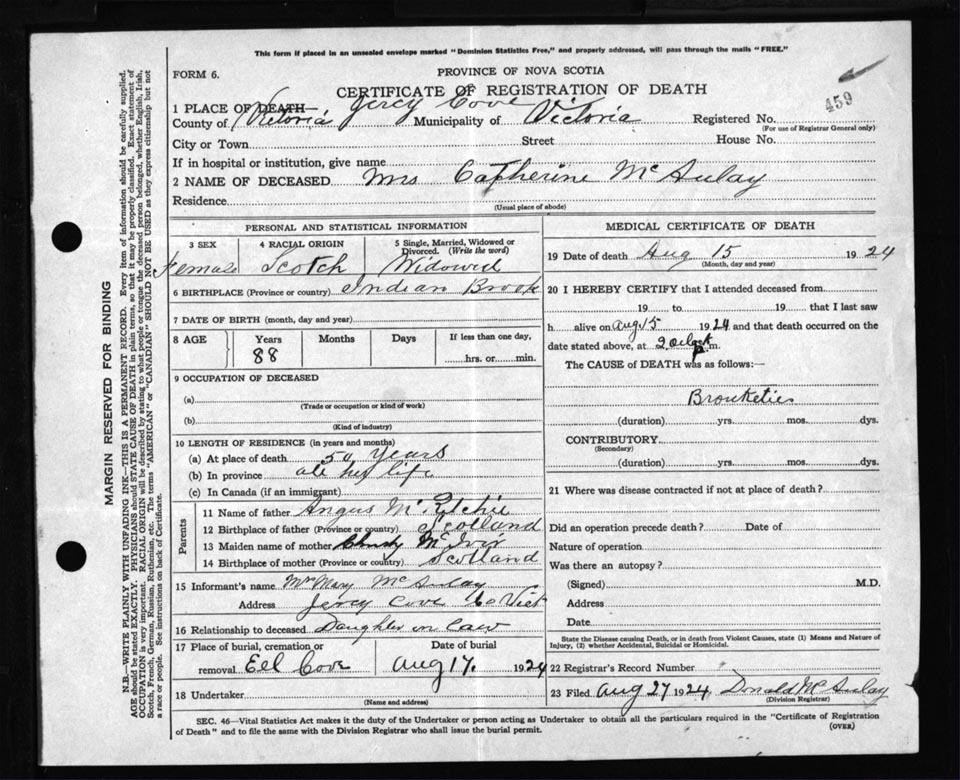 This form if placed in an unsealed envelope marked "Dominion Statistics Free," and properly addressed, will pass through the mails "FREE."
FORM 6.
PROVINCE OF NOVA SCOTIA
CERTIFICATE OF REGISTRATION OF DEATH
459
1 PLACE OF DEATH Jercy Cove
County of Victoria Municipality of Victoria Registered No.
(For use of Registrar General only)
City or Town Street House No.
If in hospital or institution, give name
2 NAME OF DECEASED Mrs Catherine McAulay
Residence
(Usual place of abode)
PERSONAL AND STATISTICAL INFORMATION
3 SEX 4 RACIAL ORIGIN 5 Single, Married, Widowed or Divorced. (Write the word)
Female Scotch Widowed
6 BIRTHPLACE (Province or country) Indian Brook
7 DATE OF BIRTH (month, day and year)
8 AGE Years Months Days If less than one day,
88 hrs. or min.
9 OCCUPATION OF DECEASED
(a)
(Trade or occupation or kind of work)
(b)
(Kind of industry)
10 LENGTH OF RESIDENCE (in years and months)
(a) At place of death 50 Years
(b) In province all her life
(c) In Canada (if an immigrant)
Parents
11 Name of father Angus McRitchie
12 Birthplace of father (Province or country) Scotland
13 Maiden name of mother Christy Mc
14 Birthplace of mother (Province or country) Scotland
15 Informant's name Mrs Mary McAulay
Address Jercy Cove Co Vict
16 Relationship to deceased Daughter in Law
17 Place of burial, cremation or removal Eel Cove
Date of burial Aug 17. 1924
18 Undertaker
(Name and address)
MEDICAL CERTIFICATE OF DEATH
19 Date of death Aug 15 1924
(Month, day and year)
20 I HEREBY CERTIFY that I attended deceased from
19 to 19 that I last saw
h alive on Aug 15 1924 and that death occurred on
date stated above, at 2 oclock p m.
The CAUSE of DEATH was as follows:—
Brouketies
(duration) yrs. mos. dys.
CONTRIBUTORY
(Secondary)
(duration) yrs. mos. dys.
21 Where was disease contracted if not at place of death?
Did an operation precede death? Date of
Nature of operation
Was there an autopsy?
(Signed) M.D.
Address
Date
State the Disease causing Death, or in death from Violent Causes, state (1) Means and Nature of
Injury, (2) whether Accidental, Suicidal or Homicidal.
22 Registrar's Record Number
23 Filed Aug 27 1924 Donald McAulay
(Division Registrar)
SEC. 46—Vital Statistics Act makes it the duty of the Undertaker or person acting as Undertaker to obtain all the particulars required in the "Certificate of Registration
of Death" and to file the same with the Division Registrar who shall issue the burial permit.
(OVER)
MARGIN RESERVED FOR BINDING
N.B.—WRITE PLAINLY WITH UNFADING INK—THIS IS A PERMANENT RECORD. Every item of information should be carefully supplied.
AGE should be stated EXACTLY. PHYSICIANS should STATE CAUSE OF DEATH in plain terms, so that it may be properly classified. Exact statement of
OCCUPATION is very important. RACIAL ORIGIN will be described by stating to what people or tongue the deceased person belonged, whether English, Irish,
Scotch, French, German, Russian, Ruthenian, etc. The terms "AMERICAN" or "CANADIAN" SHOULD NOT BE USED as they express citizenship but not
a race or people. See instructions on back of Certificate.